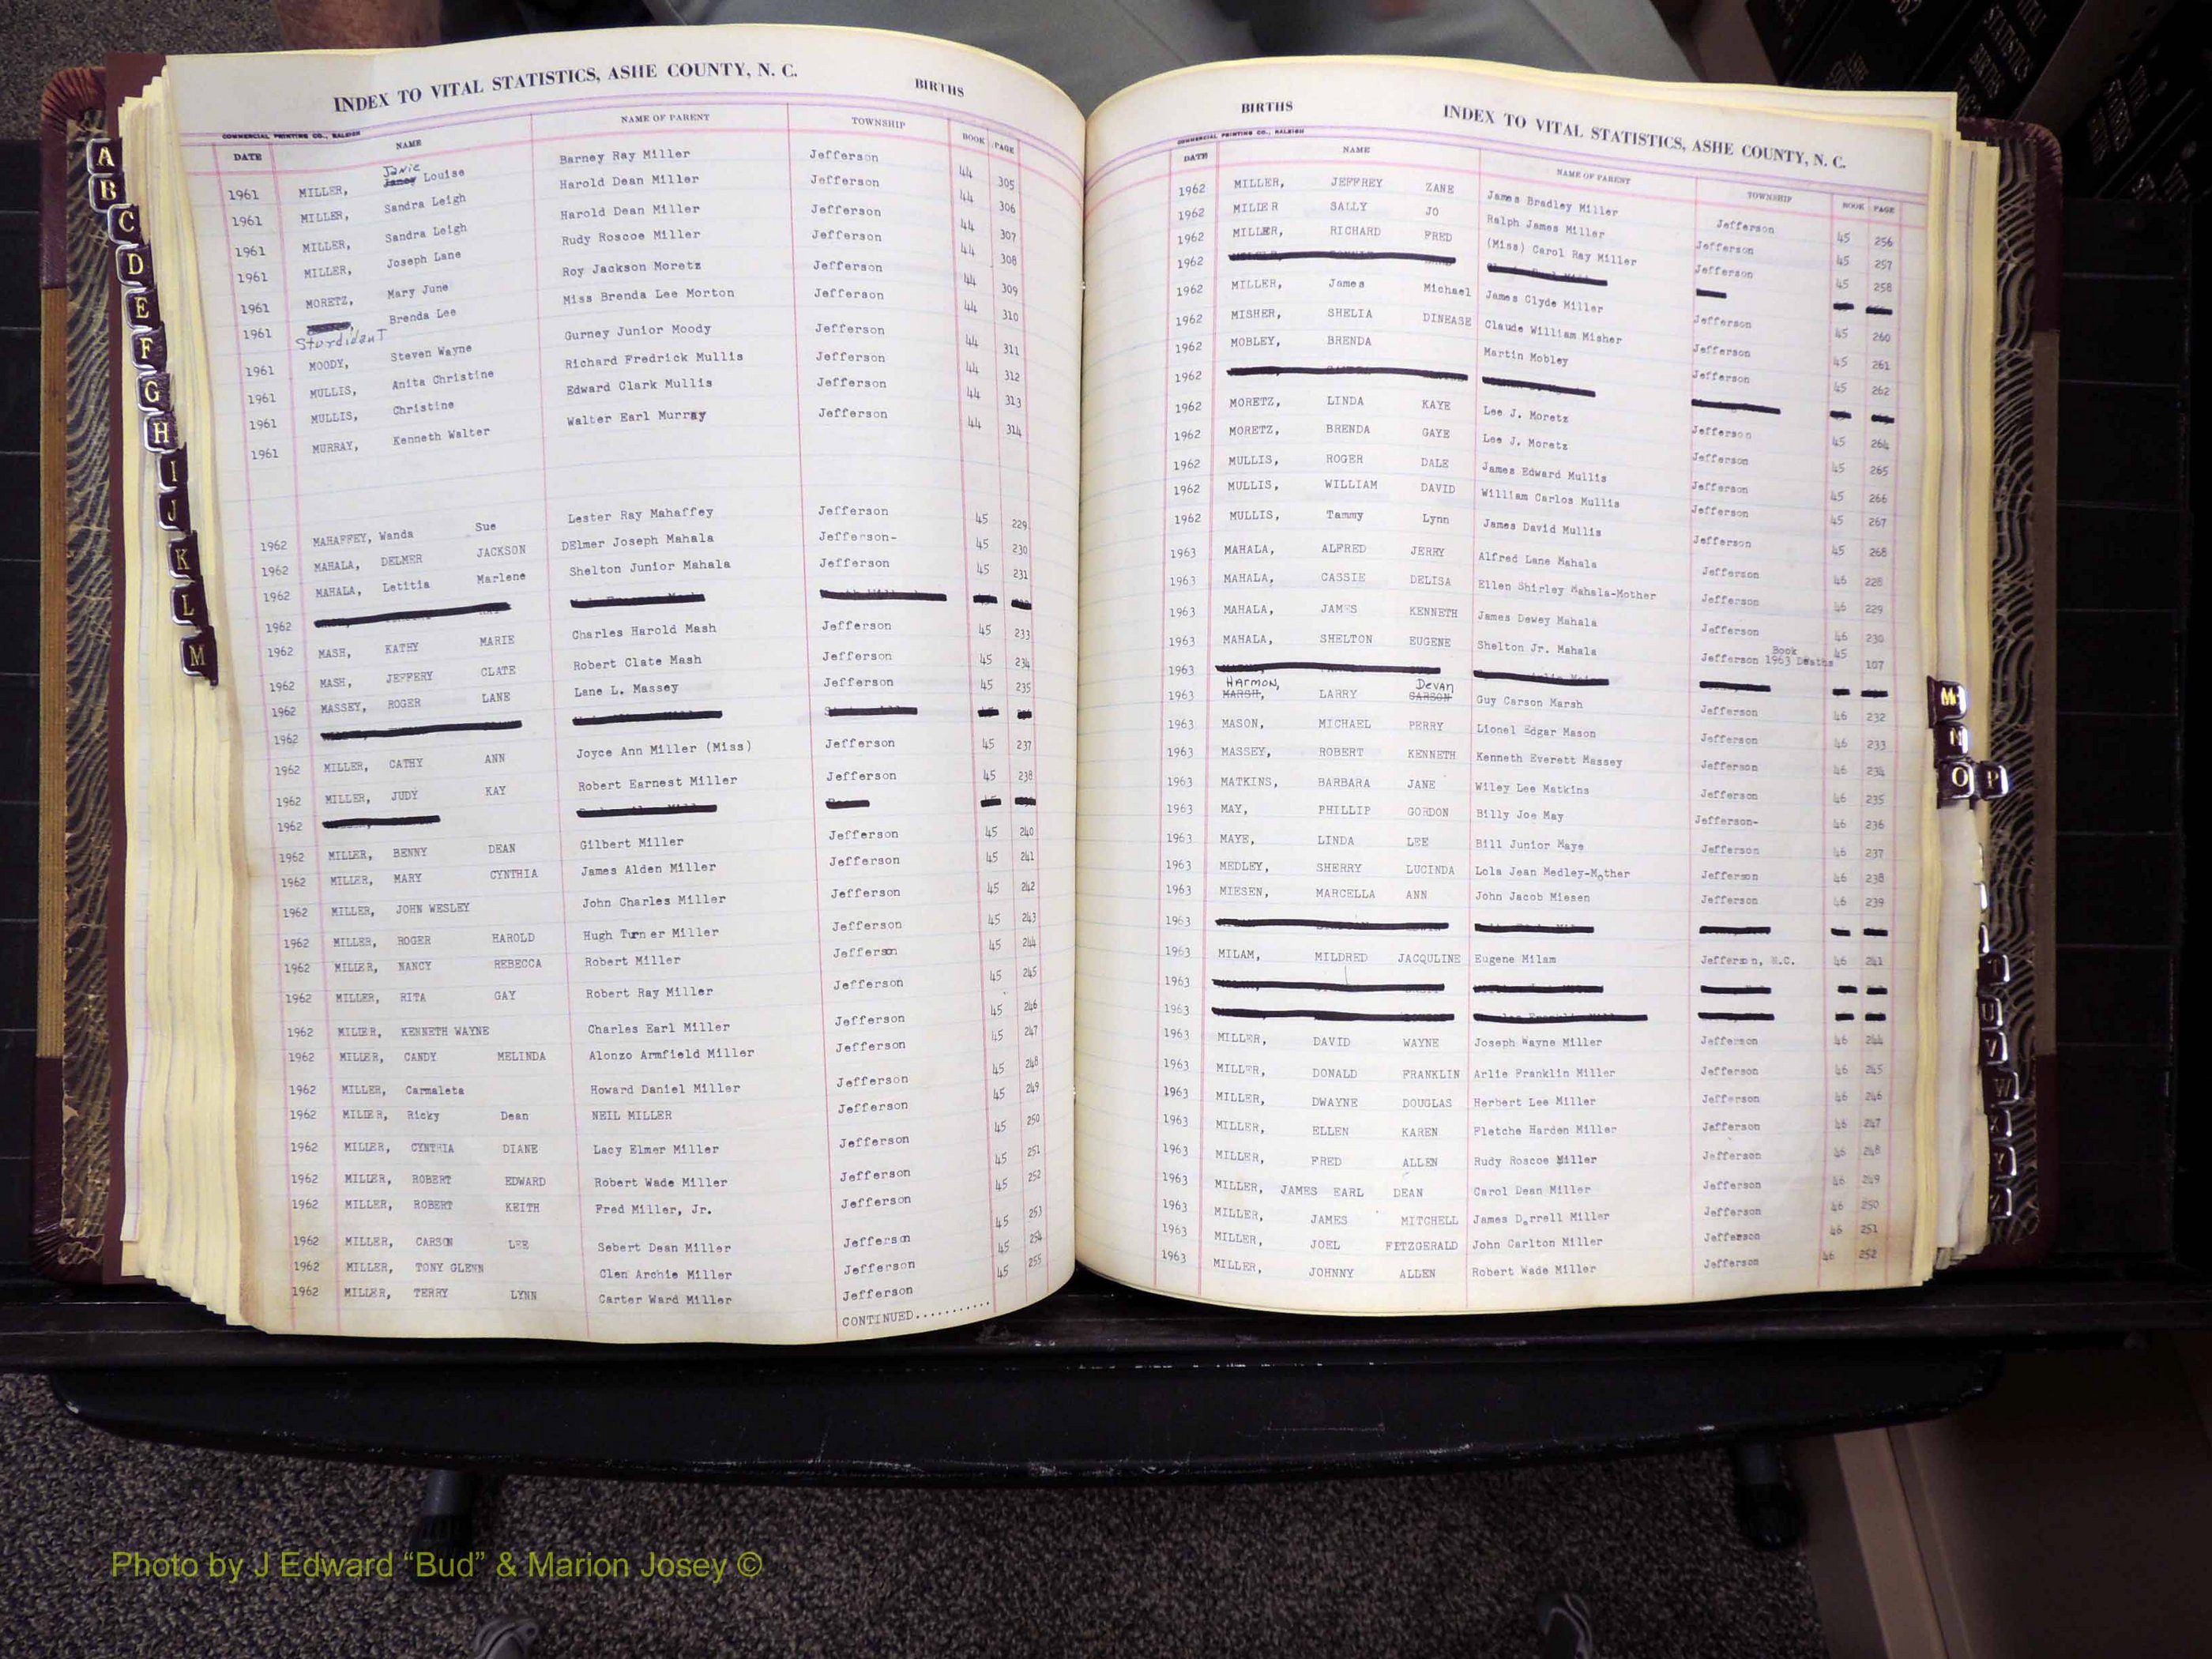 INDEX TO VITAL STATISTICS, ASHE COUNTY, N. C. BIRTHS
COMMERCIAL PRINTING CO., RALEIGH
DATE NAME NAME OF PARENT TOWNSHIP BOOK PAGE
Janie
1961 MILLER, Janey Louise Barney Ray Miller Jefferson 44 305
1961 MILLER, Sandra Leigh Harold Dean Miller Jefferson 44 306
1961 MILLER, Sandra Leigh Harold Dean Miller Jefferson 44 307
1961 MILLER, Joseph Lane Rudy Roscoe Miller Jefferson 44 308
1961 MORETZ, Mary June Roy Jackson Moretz Jefferson 44 309
1961 Brenda Lee Miss Brenda Lee Morton Jefferson 44 310
Sturdident
1961 MOODY, Steven Wayne Gurney Junior Moody Jefferson 44 311
1961 MULLIS, Anita Christine Richard Fredrick Mullis Jefferson 44 312
1961 MULLIS, Christine Edward Clark Mullis Jefferson 44 313
1961 MURRAY, Kenneth Walter Walter Earl Murray Jefferson 44 314
1962 MAHAFFEY, Wanda Sue Lester Ray Mahaffey Jefferson 45 229
1962 MAHALA, DELMER JACKSON DElmer Joseph Mahala Jefferson- 45 230
1962 MAHALA, Letitia Marlene Shelton Junior Mahala Jefferson 45 231
1962
1962 MASH, KATHY MARIE Charles Harold Mash Jefferson 45 233
1962 MASH, JEFFERY CLATE Robert Clate Mash Jefferson 45 234
1962 MASSEY, ROGER LANE Lane L. Massey Jefferson 45 235
1962
1962 MILLER, CATHY ANN Joyce Ann Miller (Miss) Jefferson 45 237
1962 MILLER, JUDY KAY Robert Earnest Miller Jefferson 45 238
1962
1962 MILLER, BENNY DEAN Gilbert Miller Jefferson 45 240
1962 MILLER, MARY CYNTHIA James Alden Miller Jefferson 45 241
1962 MILLER, JOHN WESLEY John Charles Miller Jefferson 45 242
1962 MILLER, ROGER HAROLD Hugh Turner Miller Jefferson 45 243
1962 MILLER, NANCY REBECCA Robert Miller Jefferson 45 244
1962 MILLER, RITA GAY Robert Ray Miller Jefferson 45 245
1962 MILLER, KENNETH WAYNE Charles Earl Miller Jefferson 45 246
1962 MILLER, CANDY MELINDA Alonzo Armfield Miller Jefferson 45 247
1962 MILLER, Carmaleta Howard Daniel Miller Jefferson 45 248
1962 MILLER, Ricky Dean NEIL MILLER Jefferson 45 249
1962 MILLER, CYNTHIA DIANE Lacy Elmer Miller Jefferson 45 250
1962 MILLER, ROBERT EDWARD Robert Wade Miller Jefferson 45 251
1962 MILLER, ROBERT KEITH Fred Miller, Jr. Jefferson 45 252
1962 MILLER, CARSON LEE Sebert Dean Miller Jefferson 45 253
1962 MILLER, TONY GLENN Clen Archie Miller Jefferson 45 254
1962 MILLER, TERRY LYNN Carter Ward Miller Jefferson 45 255
CONTINUED...........
BIRTHS INDEX TO VITAL STATISTICS, ASHE COUNTY, N. C.
COMMERCIAL PRINTING CO., RALEIGH
DATE NAME NAME OF PARENT TOWNSHIP BOOK PAGE
1962 MILLER, JEFFREY ZANE James Bradley Miller Jefferson 45 256
1962 MILLER SALLY JO Ralph James Miller Jefferson 45 257
1962 MILLER, RICHARD FRED (Miss) Carol Ray Miller Jefferson 45 258
1962
1962 MILLER, James Michael James Clyde Miller Jefferson 45 260
1962 MISHER, SHELIA DINEASE Claude William Misher Jefferson 45 261
1962 MOBLEY, BRENDA Martin Mobley Jefferson 45 262
1962
1962 MORETZ, LINDA KAYE Lee J. Moretz Jefferson 45 264
1962 MORETZ, BRENDA GAYE Lee J. Moretz Jefferson 45 265
1962 MULLIS, ROGER DALE James Edward Mullis Jefferson 45 266
1962 MULLIS, WILLIAM DAVID William Carlos Mullis Jefferson 45 267
1962 MULLIS, Tammy Lynn James David Mullis Jefferson 45 268
1963 MAHALA, ALFRED JERRY Alfred Lane Mahala Jefferson 46 228
1963 MAHALA, CASSIE DELISA Ellen Shirley Mahala-Mother Jefferson 46 229
1963 MAHALA, JAMES KENNETH James Dewey Mahala Jefferson 46 230
Book 45
1963 MAHALA, SHELTON EUGENE Shelton Jr. Mahala Jefferson 1963 Deaths 107
1963
HARMON, Devan
1963 MARSH, LARRY CARSON Guy Carson Marsh Jefferson 46 232
1963 MASON, MICHAEL PERRY Lionel Edgar Mason Jefferson 46 233
1963 MASSEY, ROBERT KENNETH Kenneth Everett Massey Jefferson 46 234
1963 MATKINS, BARBARA JANE Wiley Lee Matkins Jefferson 46 235
1963 MAY, PHILLIP GORDON Billy Joe May Jefferson- 46 236
1963 MAYE, LINDA LEE Bill Junior Maye Jefferson 46 237
1963 MEDLEY, SHERRY LUCINDA Lola Jean Medley-Mother Jefferson 46 238
1963 MIESEN, MARCELLA ANN John Jacob Miesen Jefferson 46 239
1963
1963 MILAM, MILDRED JACQULINE Eugene Milam Jefferson, N.C. 46 241
1963
1963
1963 MILLER, DAVID WAYNE Joseph Wayne Miller Jefferson 46 244
1963 MILLER, DONALD FRANKLIN Arlie Franklin Miller Jefferson 46 245
1963 MILLER, DWAYNE DOUGLAS Herbert Lee Miller Jefferson 46 246
1963 MILLER, ELLEN KAREN Fletche Harden Miller Jefferson 46 247
1963 MILLER, FRED ALLEN Rudy Roscoe Miller Jefferson 46 248
1963 MILLER, JAMES EARL DEAN Carol Dean Miller Jefferson 46 249
1963 MILLER, JAMES MITCHELL James Darrell Miller Jefferson 46 250
1963 MILLER, JOEL FETZGERALD John Carlton Miller Jefferson 46 251
1963 MILLER, JOHNNY ALLEN Robert Wade Miller Jefferson 46 252
A
B
C
D
E
F
G
H
I
J
K
L
M
Mc
N
O P
T
U
V
W
X
Y
Z
VITAL STATISTICS
Photo by J Edward “Bud” & Marion Josey ©